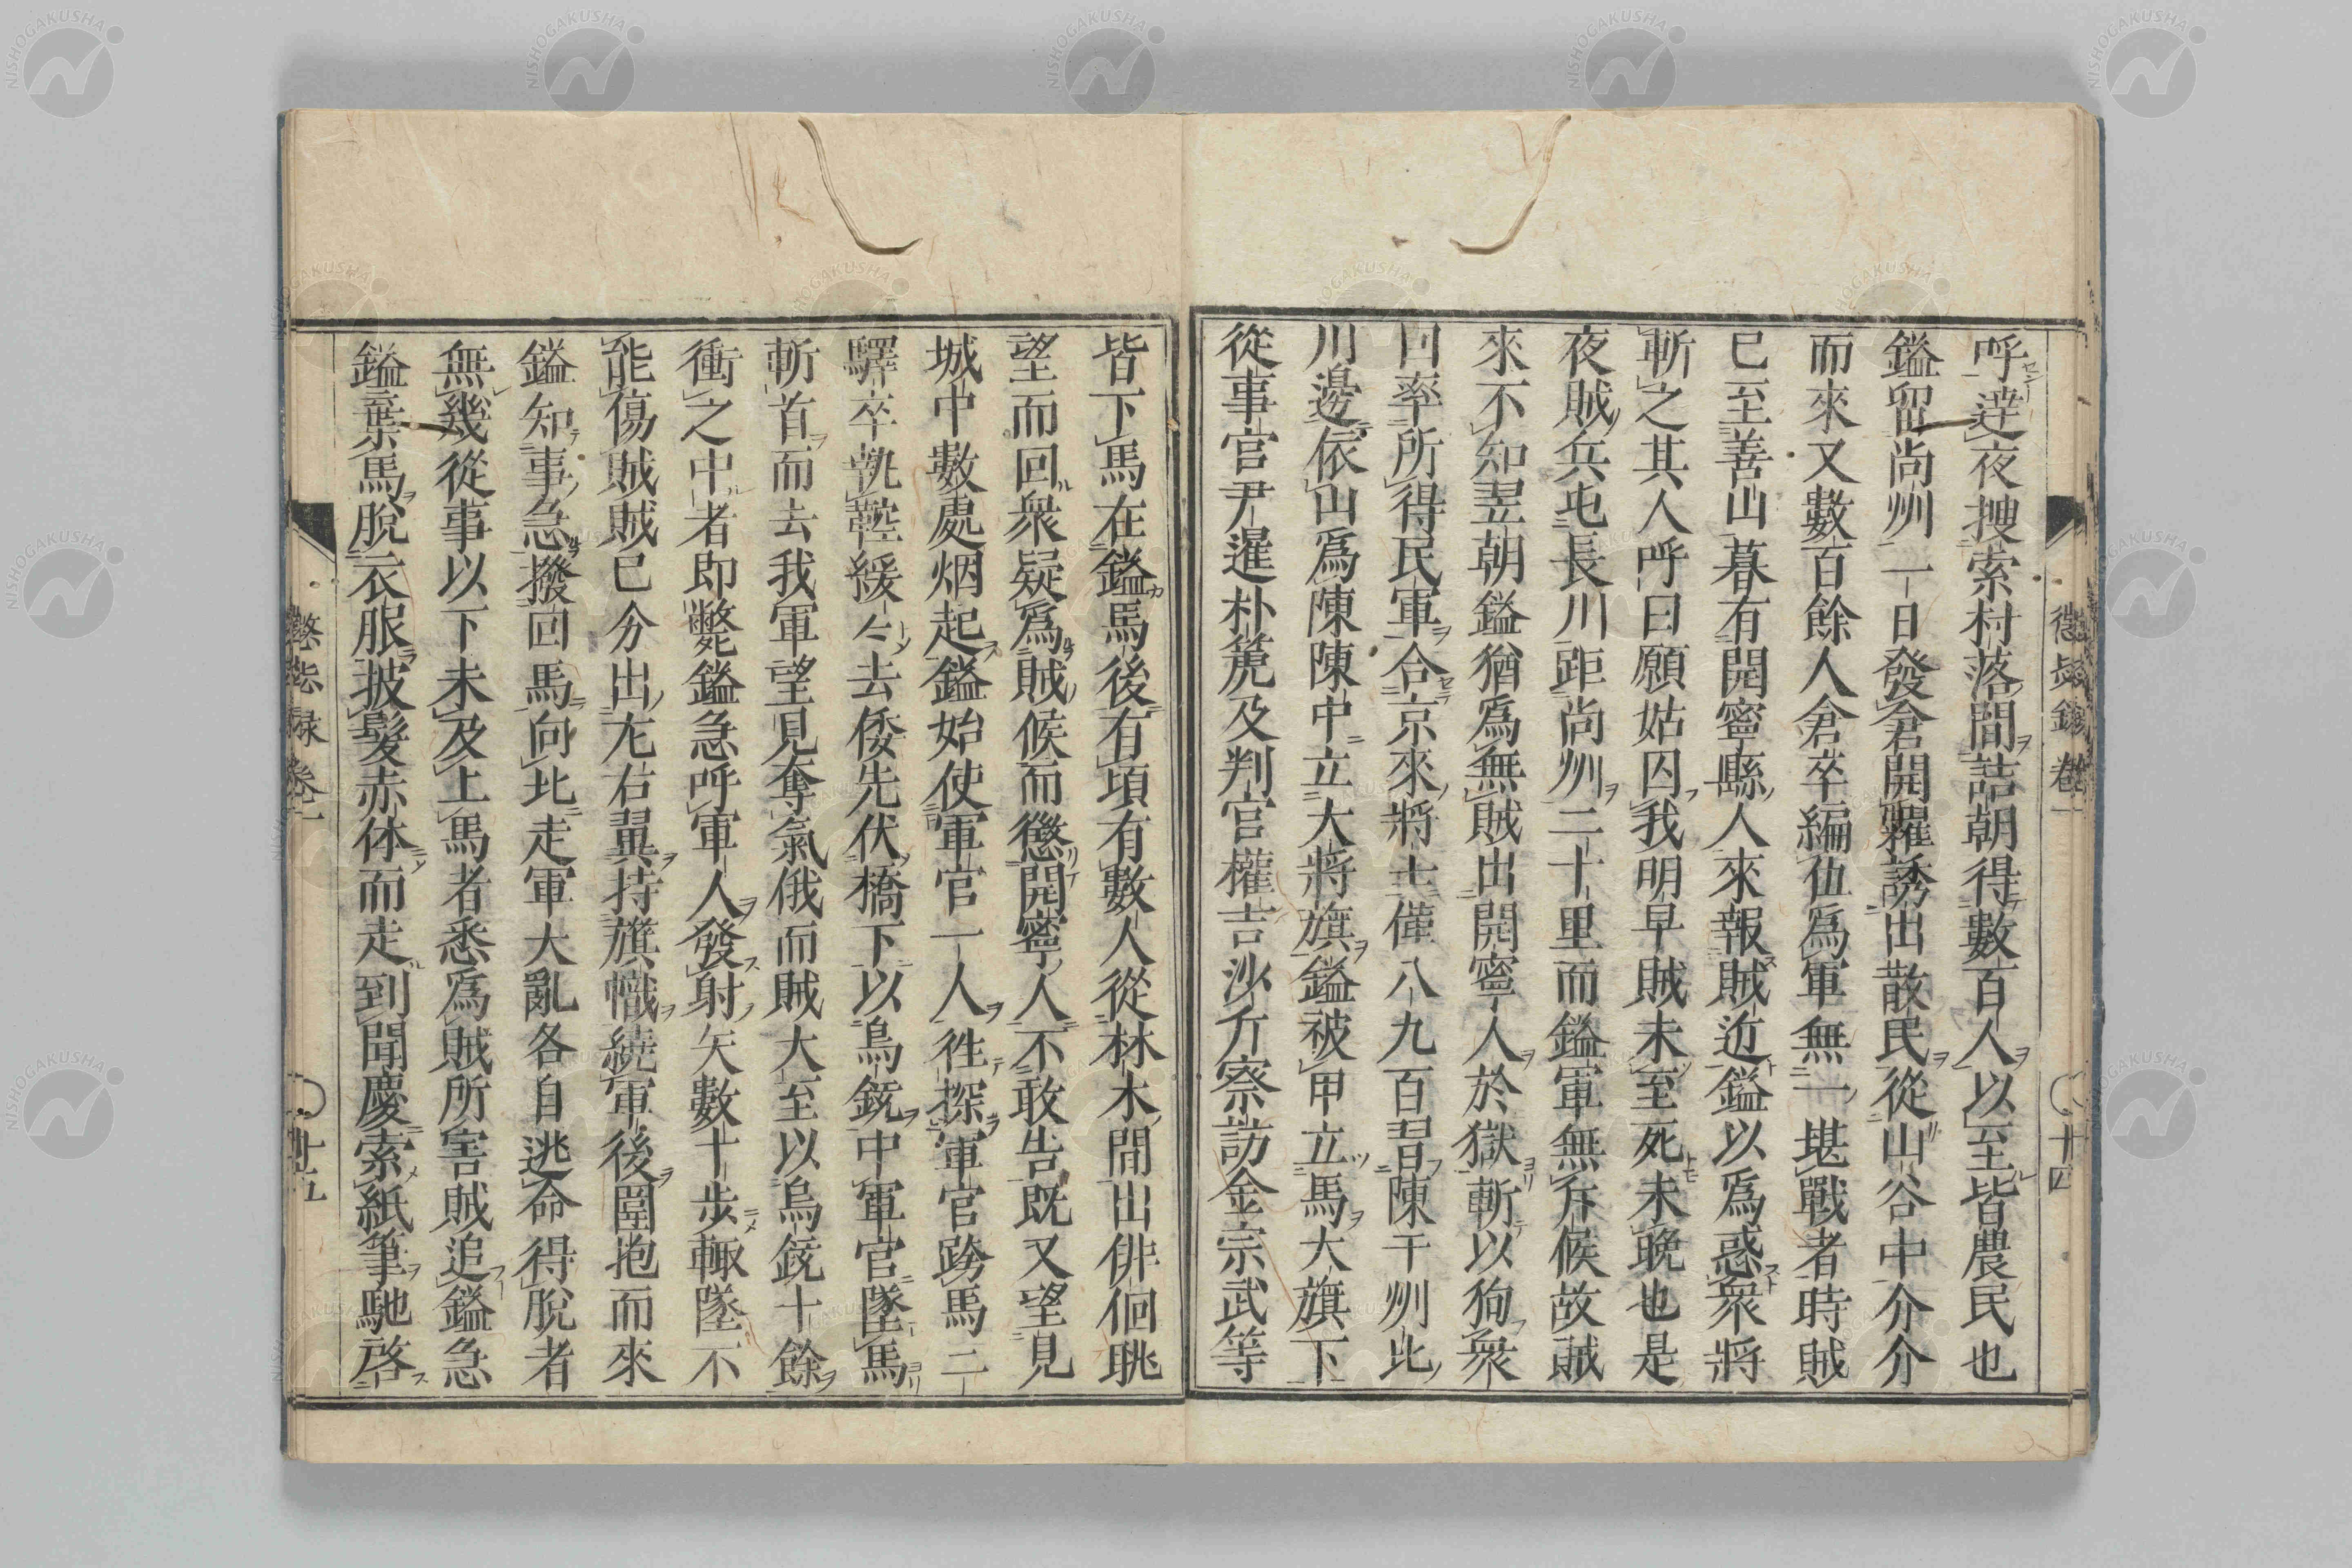 呼達夜搜索村落間詰朝得數百人以至皆農民也
鎰留尚州一日發倉開糶誘出散民從山谷中介介
而來又數百餘人倉卒編伍爲軍無一堪戰者時賊
已至善山暮有開寧縣人來報賊近鎰以爲惑衆將
斬之其人呼曰願姑囚我明早賊未至死未晩也是
夜賊兵屯長川距尚州二十里而鎰軍無斥候故賊
來不知翌朝鎰猶爲無賊出開寧人於獄斬以狥衆
因率所得民軍合京來將士僅八九百習陳于州北
川邊依山爲陳陳中立大將旗鎰被甲立馬大旗下
從事官尹暹朴箎及判官權吉沙斤察訪金宗武等
皆下馬在鎰馬後有頃有數人從林木間出徘徊眺
望而回衆疑爲賊候而懲開寧人不敢告既又望見
城中數處烟起鎰始使軍官一人徃探軍官跨馬二
驛卒執鞚緩々去倭先伏橋下以鳥銃中軍官墜馬
斬首而去我軍望見奪氣俄而賊大至以鳥銃十餘
衝之中者即斃鎰急呼軍人發射矢數十步輙墜不
能傷賊賊已分出左右翼持旗幟繞軍後圍抱而來
鎰知事急撥回馬向北走軍大亂各自逃命得脫者
無幾從事以下未及上馬者悉爲賊所害賊追鎰急
鎰棄馬脫衣服披髮赤体而走到聞慶索紙筆馳啓
懲毖錄卷一
廿四
懲毖録卷一
廿五
NISHOGAKUSHA